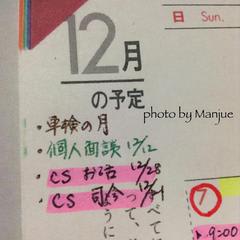 日 Sun.
12月
の予定
photo by Manjue
・車検の月
・個人面談 12/12
・CS お話 12/28
・CS 司会 12/21
1
9:00